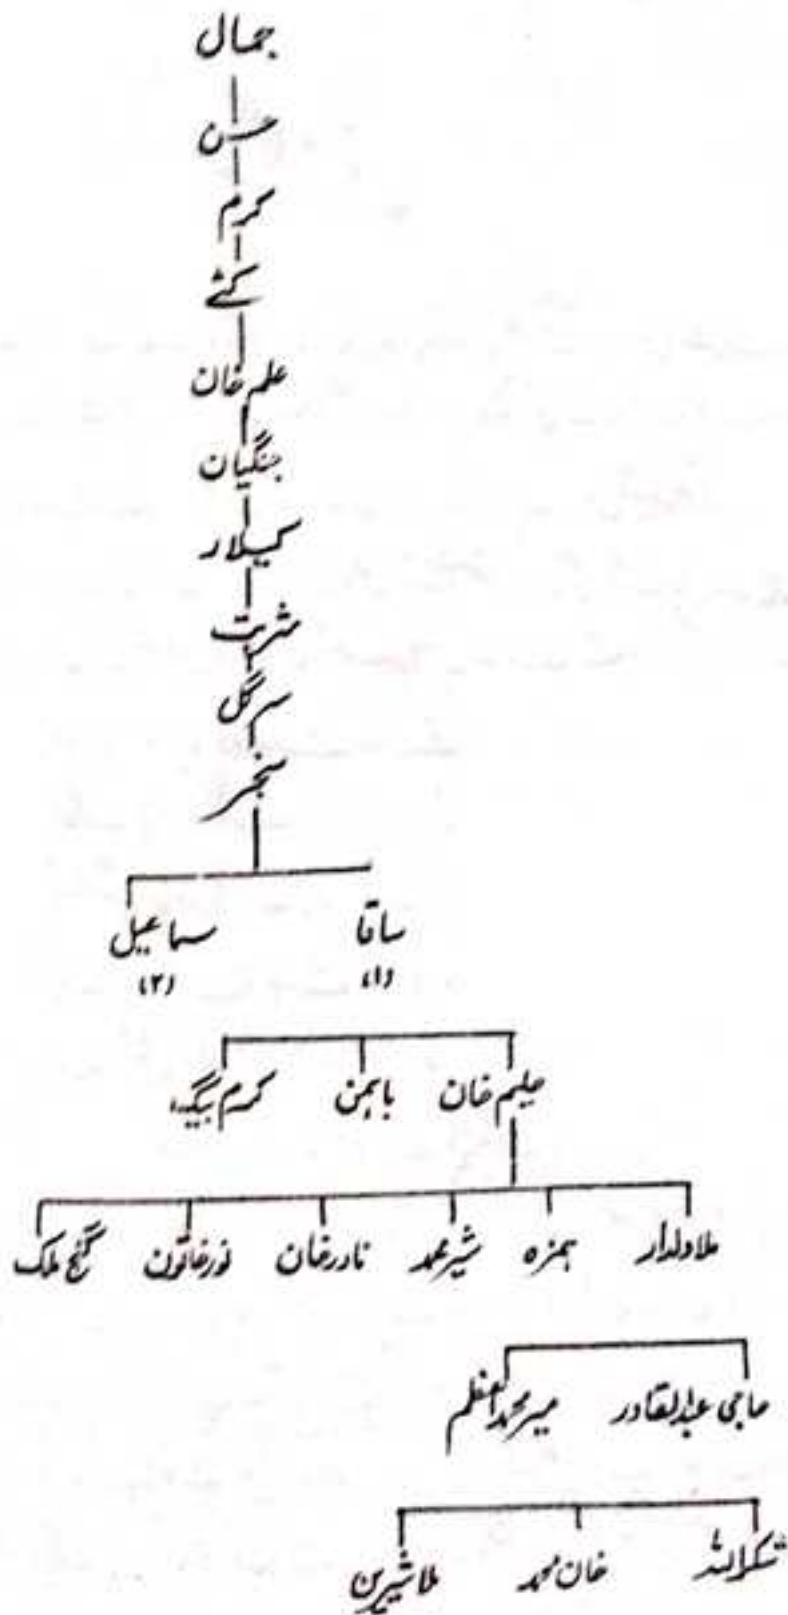 جمال
حسن
کرم
کٹے
علم خان
جنگیان
کمیلار
شربت
سرگل
سنجر
ساقا سماعیل
(۱) (۲)
حلیم خان باہمن کرم بیگ
ملا ولدار ہمزہ شیر محمد نادر خان نور خاتون گنج ملک
حاجی عبدالقادر میر محمد اعظم
شکراللہ خان محمد ملا شیرین